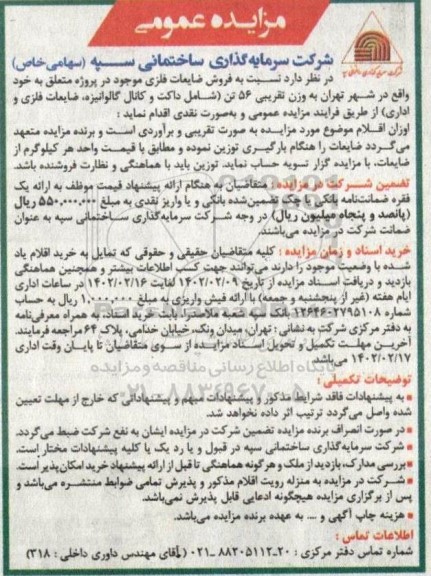 مزایده عمومی
شرکت سرمایه‌گذاری ساختمانی سپه (سهامی خاص)
در نظر دارد نسبت به فروش ضایعات فلزی موجود در پروژه متعلق به خود
واقع در شهر تهران به وزن تقریبی ۵۶ تن (شامل داکت و کانال گالوانیزه، ضایعات فلزی و
اداری) از طریق فرایند مزایده عمومی و به‌صورت نقدی اقدام نماید :
اوزان اقلام موضوع مورد مزایده به صورت تقریبی و برآوردی است و برنده مزایده متعهد
می‌گردد ضایعات را هنگام بارگیری توزین نموده و مطابق با قیمت واحد هر کیلوگرم از
ضایعات، با مزایده گزار تسویه حساب نماید. توزین باید با هماهنگی و نظارت فروشنده باشد.
تضمین شرکت در مزایده : متقاضیان به هنگام ارائه پیشنهاد قیمت موظف به ارائه یک
فقره ضمانت‌نامه بانکی یا چک تضمین‌شده بانکی و یا واریز نقدی به مبلغ ۵۵۰,۰۰۰,۰۰۰ ریال
(پانصد و پنجاه میلیون ریال) در وجه شرکت سرمایه‌گذاری ساختمانی سپه به عنوان
ضمانت شرکت در مزایده می‌باشند.
خرید اسناد و زمان مزایده : کلیه متقاضیان حقیقی و حقوقی که تمایل به خرید اقلام یاد
شده با وضعیت موجود را دارند می‌توانند جهت کسب اطلاعات بیشتر و همچنین هماهنگی
بازدید و دریافت اسناد مزایده از تاریخ ۱۴۰۲/۰۲/۰۹ لغایت ۱۴۰۲/۰۲/۱۶ در ساعات اداری
ایام هفته (غیر از پنجشنبه و جمعه) با ارائه فیش واریزی به مبلغ ۱,۰۰۰,۰۰۰ ریال به حساب
شماره ۱۲۶۴۶۰۲۷۹۵۱۰۸ بانک سپه شعبه ملاصدرا، بابت خرید اسناد، به همراه معرفی‌نامه
به دفتر مرکزی شرکت به نشانی : تهران، میدان ونک، خیابان خدامی، پلاک ۶۴ مراجعه فرمایند.
آخرین مهلت تکمیل و تحویل اسناد مزایده از سوی متقاضیان تا پایان وقت اداری
۱۴۰۲/۰۲/۱۷ می‌باشد.
پایگاه اطلاع رسانی مناقصه و مزایده
توضیحات تکمیلی :
- به پیشنهادات فاقد شرایط مذکور و پیشنهادات مبهم و پیشنهاداتی که خارج از مهلت تعیین
شده واصل می‌گردد ترتیب اثر داده نخواهد شد.
- در صورت انصراف برنده مزایده تضمین شرکت در مزایده ایشان به نفع شرکت ضبط می‌گردد.
- شرکت سرمایه‌گذاری ساختمانی سپه در قبول و یا رد یک یا کلیه پیشنهادات مختار است.
- بررسی مدارک، بازدید از ملک و هرگونه هماهنگی تا قبل از ارائه پیشنهاد خرید امکان‌پذیر است.
- شرکت در مزایده به منزله رویت اقلام مذکور و پذیرش تمامی ضوابط منتشره می‌باشد و
پس از برگزاری مزایده هیچگونه ادعایی قابل پذیرش نمی‌باشد.
- هزینه چاپ آگهی و .... به عهده برنده مزایده می‌باشد.
اطلاعات تماس :
شماره تماس دفتر مرکزی : ۲۰-۸۸۲۰۵۱۱۲ -۰۲۱ (آقای مهندس داوری داخلی : ۳۱۸)